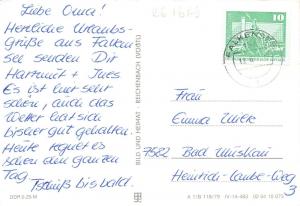 Liebe Oma!
Herzliche Urlaubs-
Grüße aus Falken
see senden Dir
Hartmut + Ines
Es ist hier sehr
schön, auch das
Wetter hat sich
bisher gut gehalten.
Heute regnet es
schon den ganzen
Tag.
Tschüß bis bald.
DDR 0,25 M
BILD UND HEIMAT · REICHENBACH (VOGTL)
10
DDR
FALKEN
Frau
Emma
7582 Bad Muskau
Heinrich-Laube-Weg
3